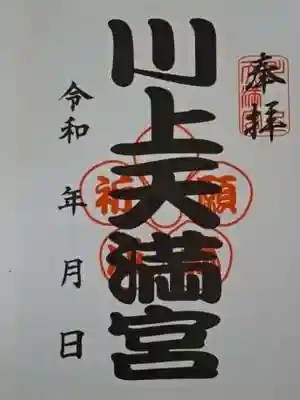 奉拝
川上天満宮
祈願
令和 年 月 日